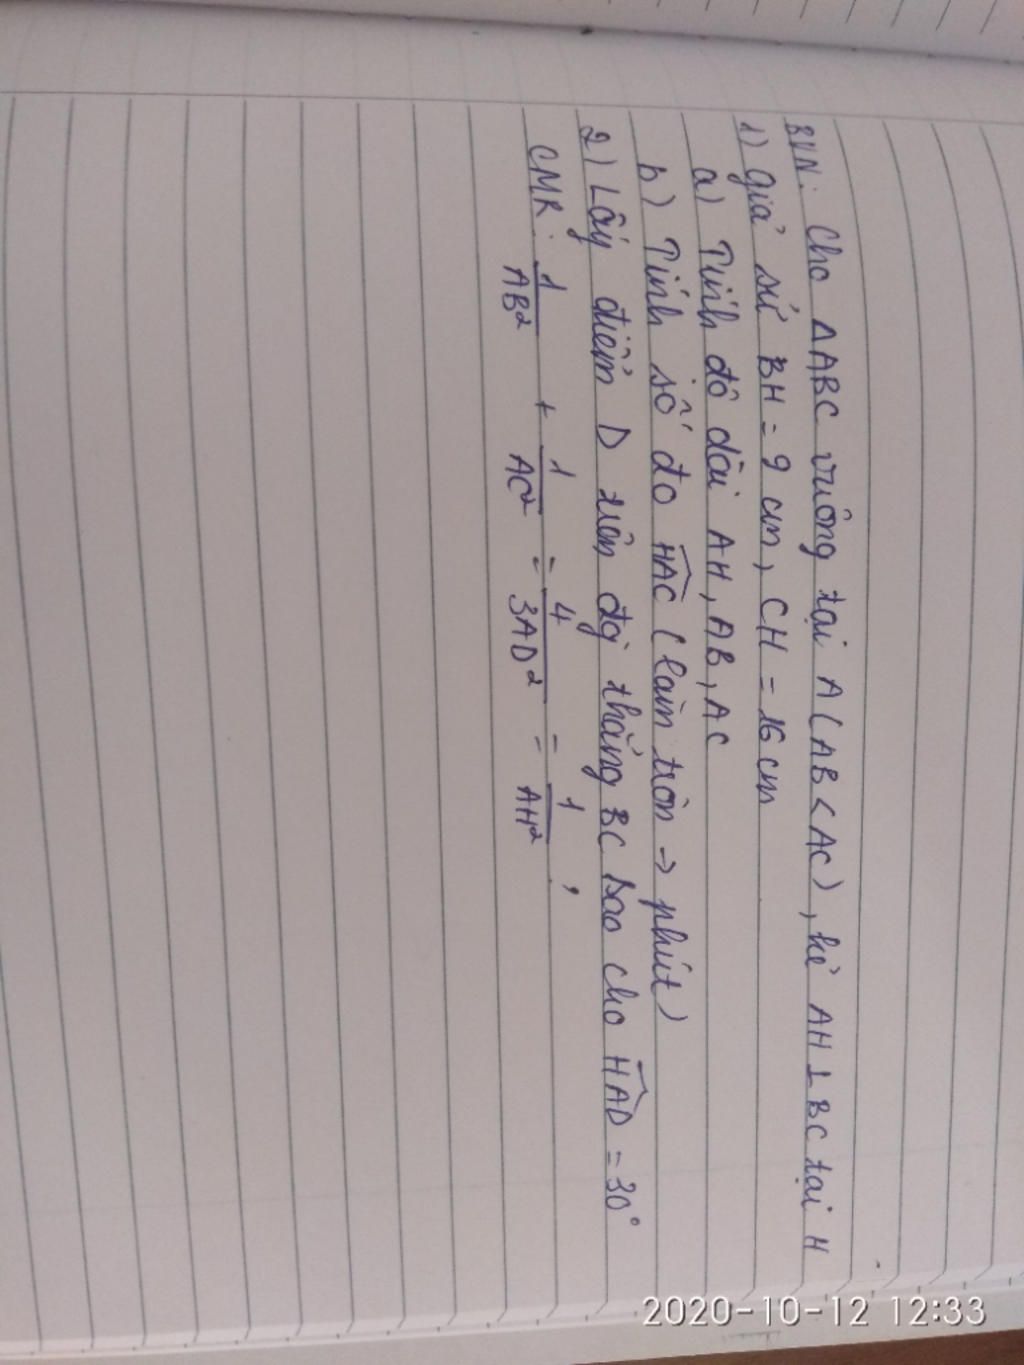 BVN: Cho ΔABC vuông tại A (AB < AC), kẻ AH ⊥ BC tại H
1) Giả sử BH = 9 cm, CH = 16 cm
a) Tính độ dài AH, AB, AC
b) Tính số đo HAC (làm tròn → phút)
2) Lấy điểm D trên đg thẳng BC sao cho HAD = 30°
CMR: 1/AB² + 1/AC² = 4/3AD² = 1/AH²,
2020-10-12 12:33